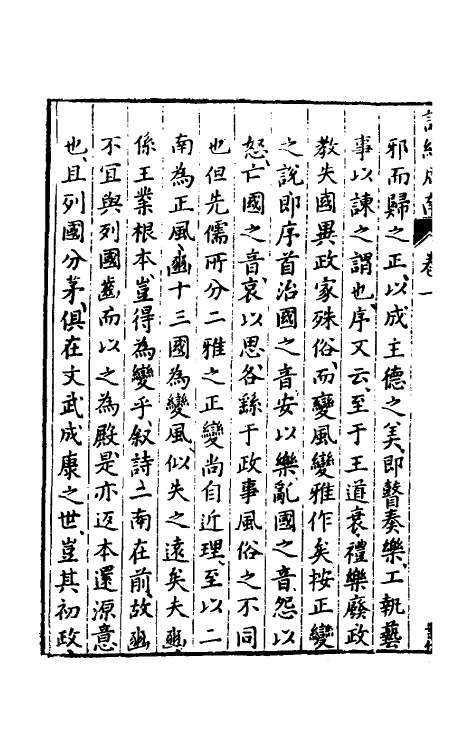 卷一
邪而歸之正、以成主德之美、即瞽奏樂、工執藝
事以諫之謂也、序又云、至于王道衰、禮樂廢、政
教失、國異政、家殊俗、而變風變雅作矣、按正變
之說、即序首治國之音、安以樂、亂國之音、怨以
怒、亡國之音、哀以思、各繇于政事風俗之不同
也、但先儒所分二雅之正變、尚自近理、至以二
南為正風、豳十三國為變風、似失之遠矣、夫豳
係王業根本、豈得為變乎、敘詩二南在前、故豳
不宜與列國齒、而以之為殿、是亦返本還源意
也、且列國分茅、俱在文武成康之世、豈其初政